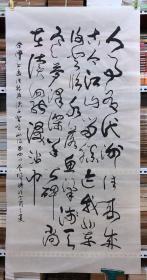 人事有代谢往来成
古今江山留勝迹我輩
復登臨水落魚梁淺天
寒夢澤深羊公碑尚
在讀罷淚沾巾